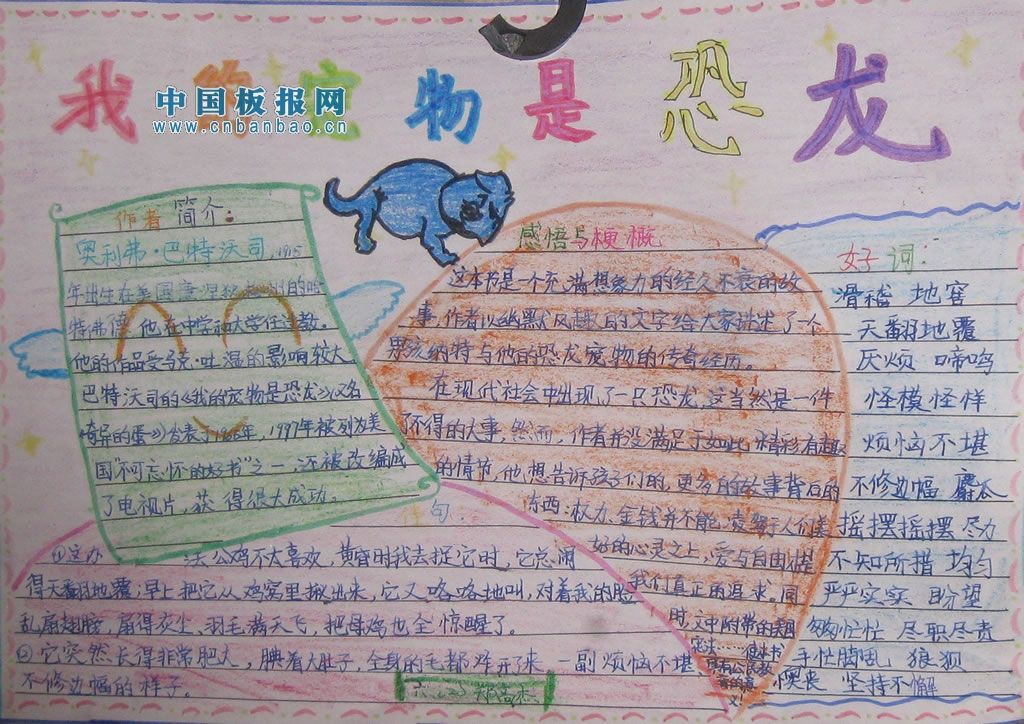 我的宠物是恐龙
中国板报网
www.cnbanbao.cn
作者简介：
奥利弗·巴特沃司，1915
年出生在美国康涅狄格州的哈
特弗德，他在中学和大学任过教。
他的作品受马克·吐温的影响较大。
巴特沃司的《我的宠物是恐龙》（又名
《奇异的蛋》）发表于1956年，1997年被列为美
国“不可忘怀的好书”之一，还被改编成
了电视片，获得很大成功。
感悟与梗概
这本书是一个充满想象力的经久不衰的故
事，作者以幽默风趣的文字给大家讲述了一个
男孩纳特与他的恐龙宠物的传奇经历。
在现代社会中出现了一只恐龙，这当然是一件
了不得的大事，然而，作者并没满足于如此精彩有趣
的情节，他想告诉孩子们的，更多的故事背后的
东西：权力、金钱并不能凌驾于人们美
好的心灵之上，爱与自由才是
我们真正的追求。同
时，文中附带的美国
好词：
滑稽 地窖
天翻地覆
厌烦 啼鸣
怪模怪样
烦恼不堪
不修边幅 蘑菇
摇摆摇摆 尽力
不知所措 均匀
严严实实 盼望
匆匆忙忙 尽职尽责
手忙脚乱 狼狈
懊丧 坚持不懈
句：
①这办法公鸡不太喜欢，黄昏时我去捉它时，它总闹
得天翻地覆；早上把它从鸡窝里揪出来，它又咯咯地叫，对着我的脸
乱扇翅膀，扇得灰尘、羽毛满天飞，把母鸡也全惊醒了。
②它突然长得非常肥大，腆着大肚子，全身的毛都炸开了来，一副烦恼不堪、
不修边幅的样子。